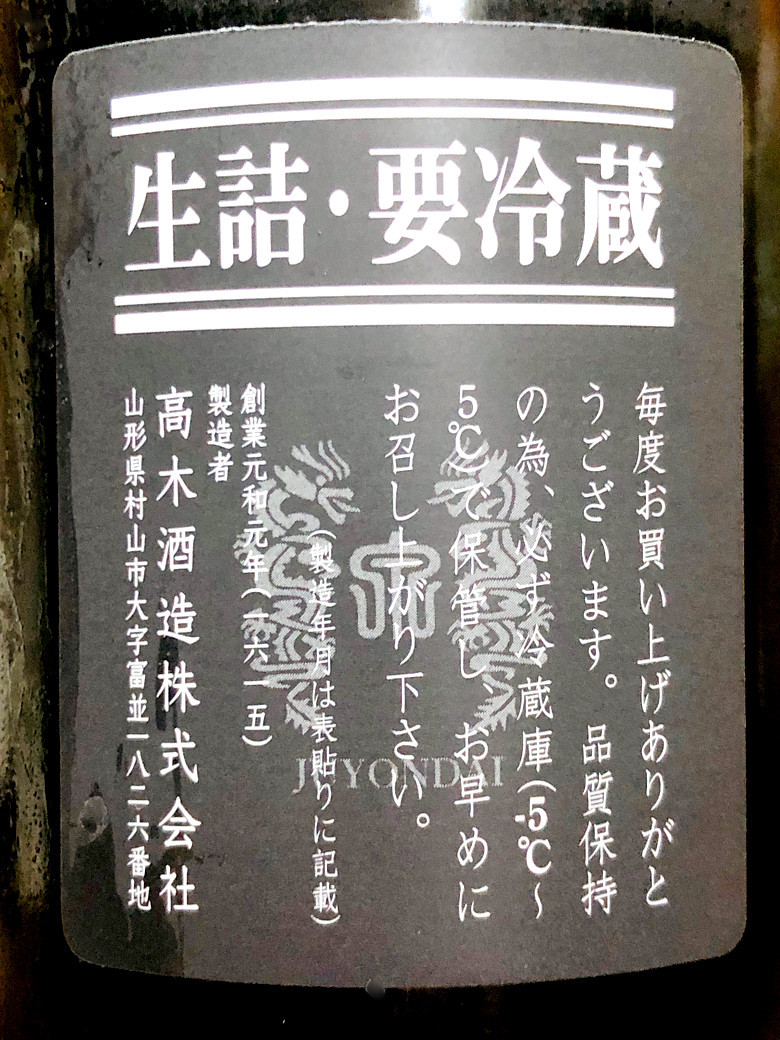 生詰・要冷蔵
毎度お買い上げありがと
うございます。品質保持
の為、必ず冷蔵庫(-5℃〜
5℃)で保管し、お早めに
お召し上がり下さい。
(製造年月は表貼りに記載)
創業元和元年(一六一五)
製造者
高木酒造株式会社
山形県村山市大字富並一八二六番地
JUYONDAI